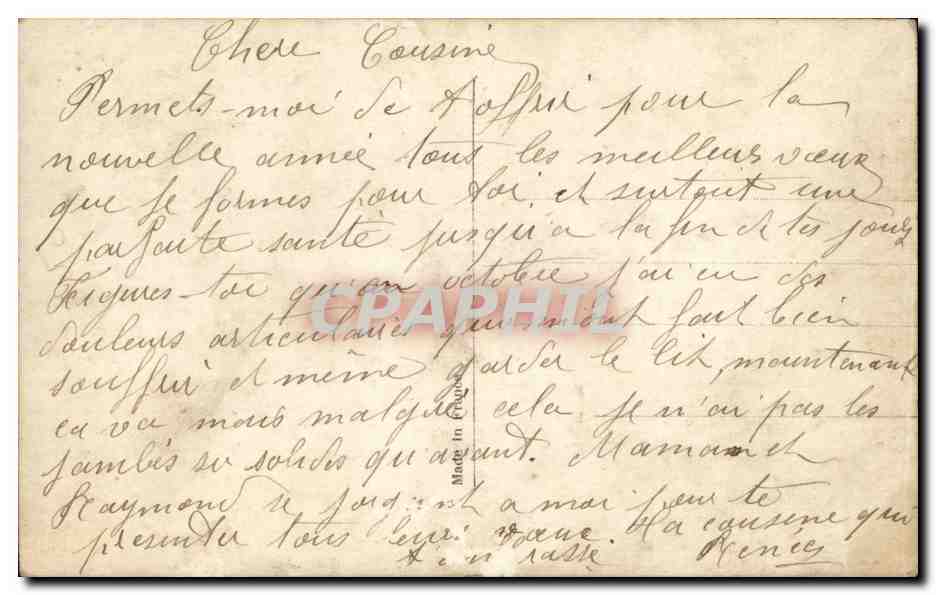 Chere Cousine
Permets-moi de t offrir pour la
nouvelle année tous les meilleurs vœux
que je formes pour toi, et surtout une
parfaite santé jusqu'a la fin de tes jours
Figures-toi qu'en octobre j'ai eu des
douleurs articulaires qui m'ont fait bien
souffrir et même garder le lit, maintenant
ca va mais malgré cela je n'ai pas les
jambes si solides qu'avant. Maman et
Raymond se joignent a moi pour te
presenter tous leurs vœux. Ta cousine qui
t'embrasse Renée
Made In France
CPAPHIL